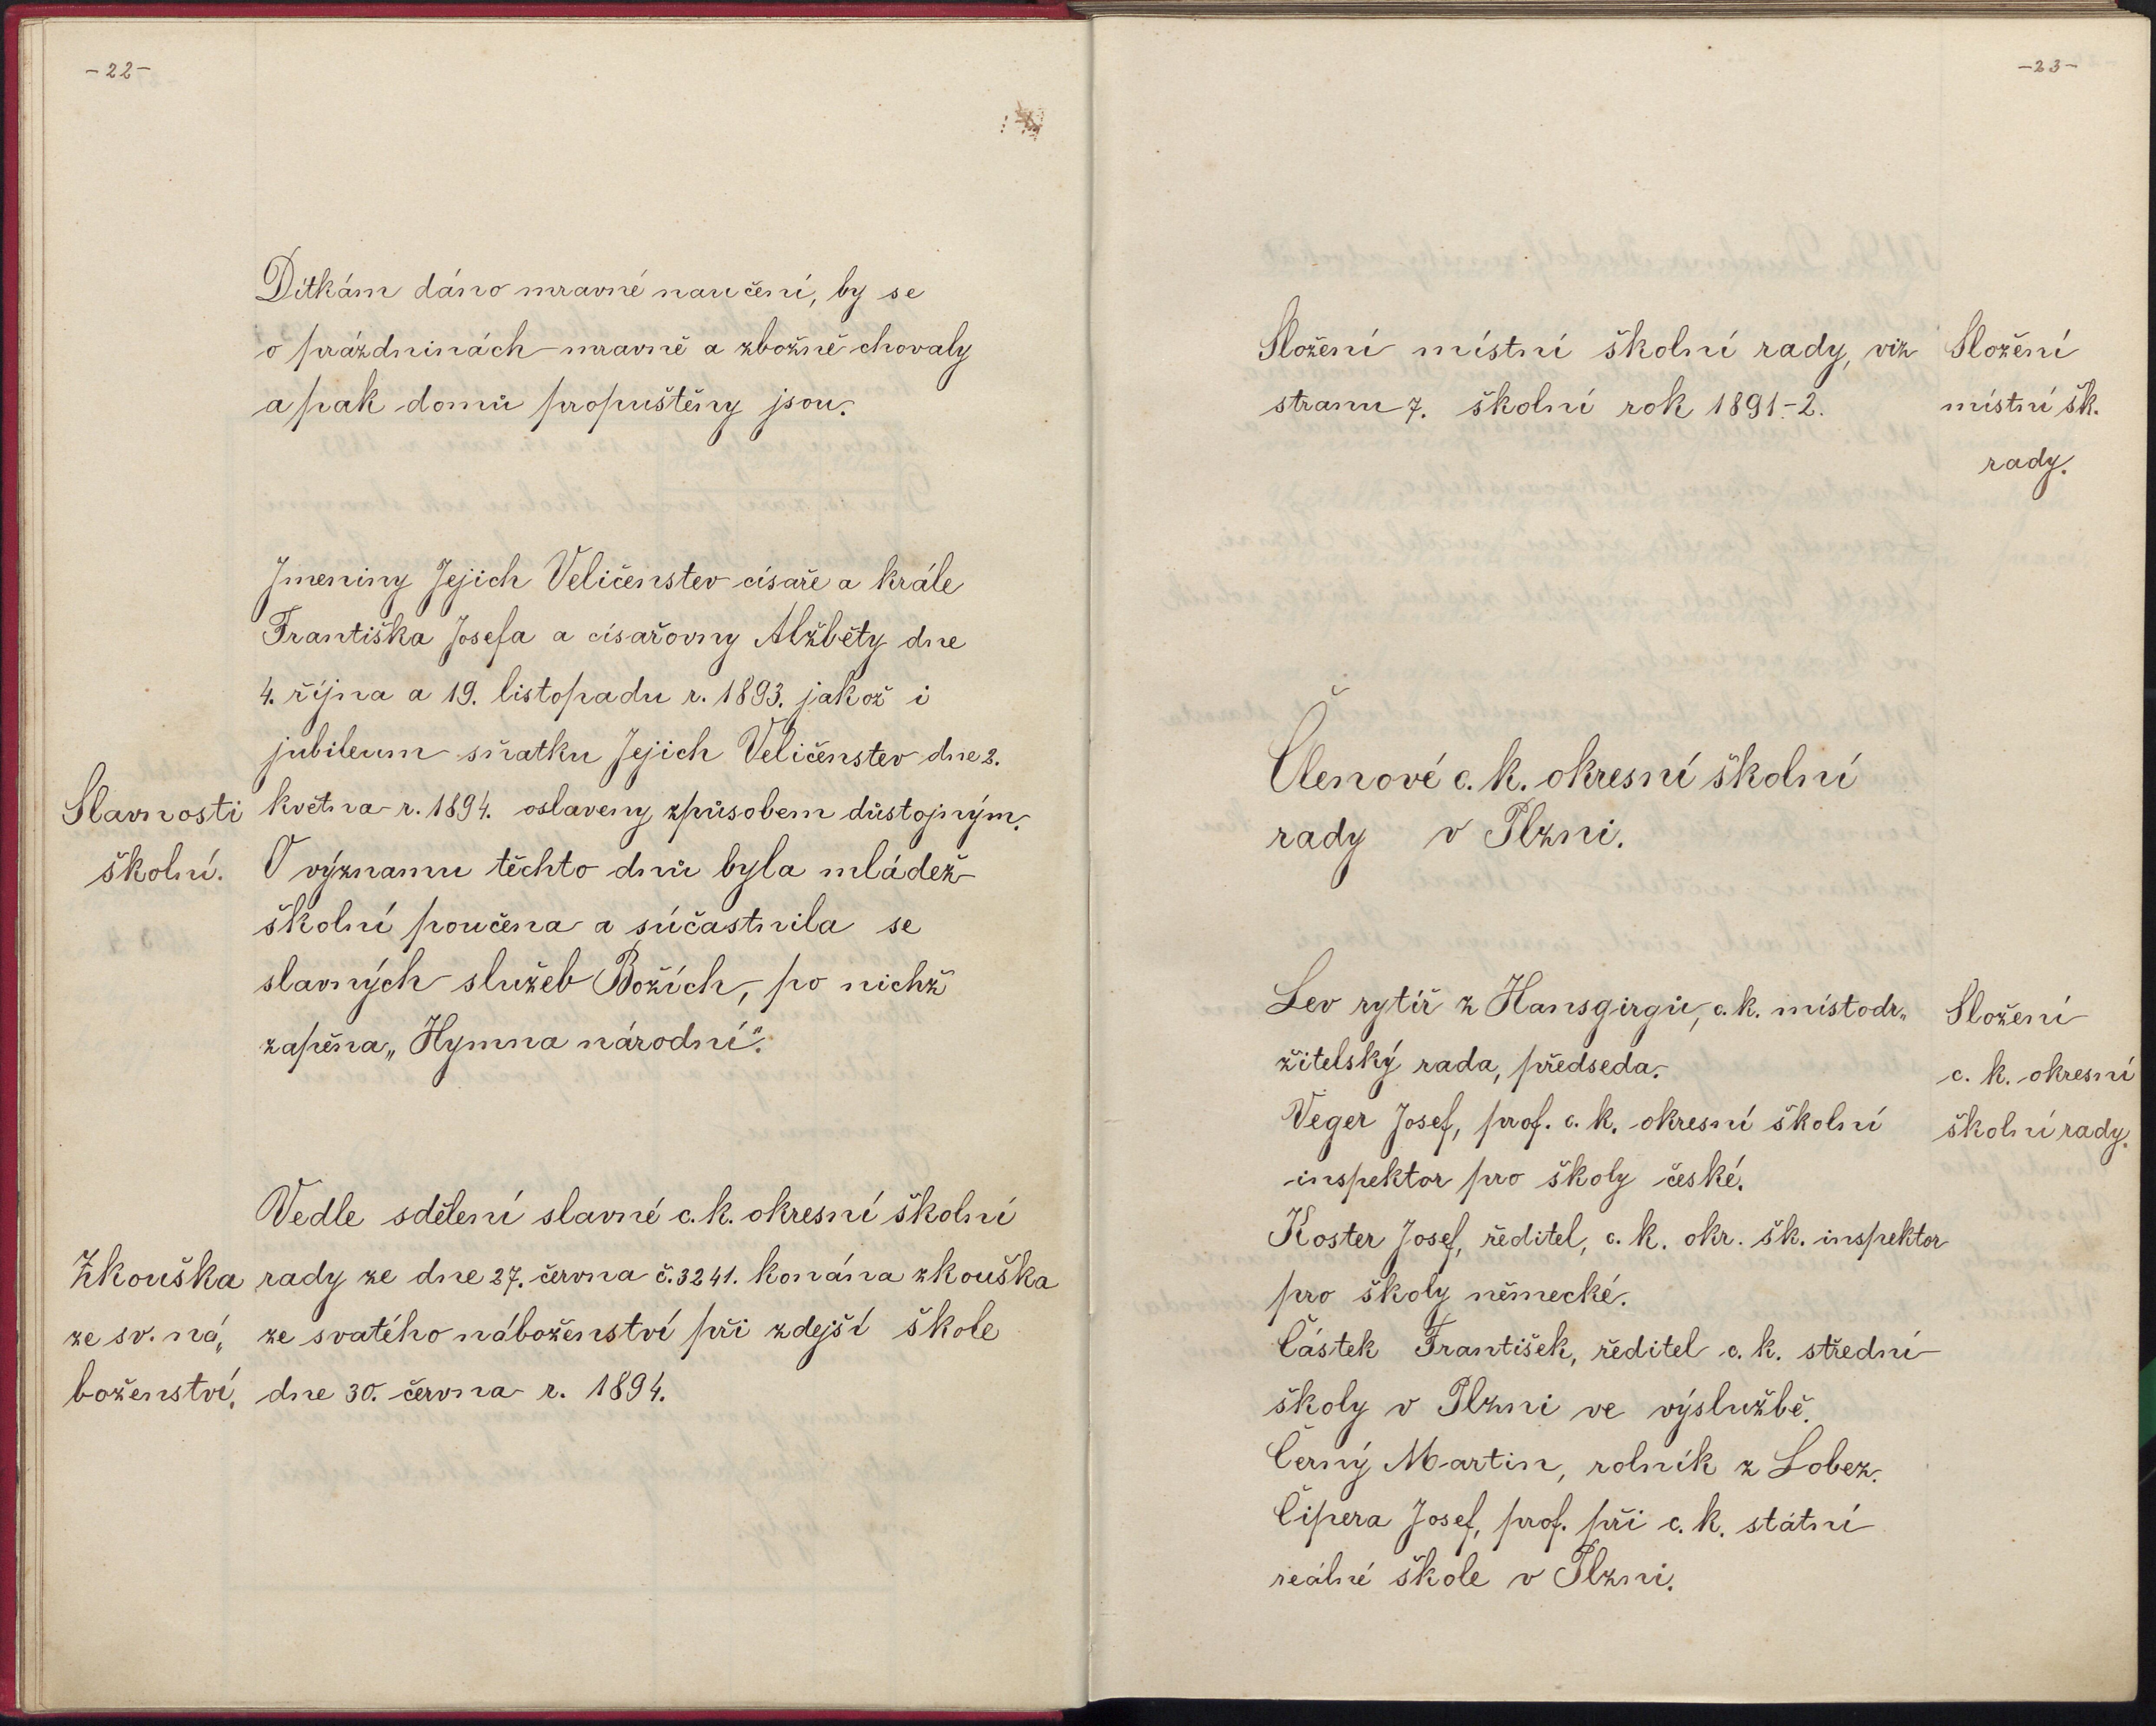 -22-
Dítkám dáno mravné naučení, by se
o prázdninách mravně a zbožně chovaly
a pak domů propuštěny jsou.
Jmeniny Jejich Veličenstev císaře a krále
Františka Josefa a císařovny Alžběty dne
4. října a 19. listopadu r. 1893. jakož i
jubileum sňatku Jejich Veličenstev dne 2.
května r. 1894. oslaveny způsobem důstojným.
O významu těchto dnů byla mládež
školní poučena a súčastnila se
slavných služeb Božích, po nichž
zapěna „Hymna národní".
Slavnosti
školní.
Vedle sdělení slavné c. k. okresní školní
rady ze dne 27. června č. 3241. konána zkouška
ze svatého náboženství při zdejší škole
dne 30. června r. 1894.
Zkouška
ze sv. ná„
boženství.
-23-
Složení místní školní rady, viz
stranu 7. školní rok 1891-2.
Složení
místní šk.
rady.
Členové c. k. okresní školní
rady v Plzni.
Lev rytíř z Hansgirgů, c. k. místodr„
žitelský rada, předseda.
Veger Josef, prof. c. k. okresní školní
inspektor pro školy české.
Koster Josef, ředitel, c. k. okr. šk. inspektor
pro školy německé.
Částek František, ředitel c. k. střední
školy v Plzni ve výslužbě.
Černý Martin, rolník z Lobez.
Čipera Josef, prof. při c. k. státní
reálné škole v Plzni.
Složení
c. k. okresní
školní rady.